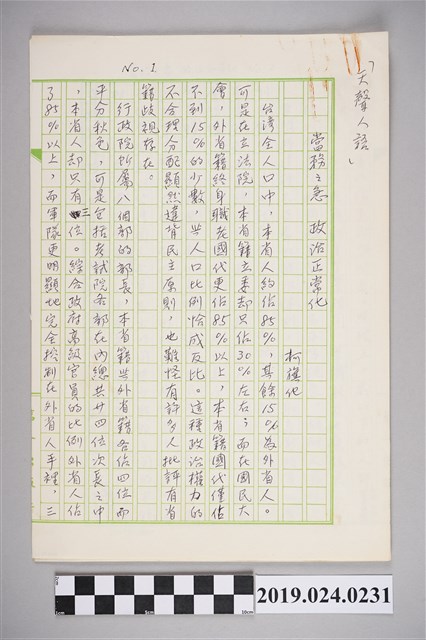 No. 1
「天聲人語」
當務之急 政治正常化
柯旗化
台灣全人口中，本省人約佔85%，其餘15%為外省人。
可是在立法院，本省籍立委却只佔30%左右；而在國民大
會，外省籍終身職老國代更佔85%以上，本省籍國代僅佔
不到15%的少數，與人口比例恰成反比。這種政治權力的
不合理分配顯然違背民主原則，也難怪有許多人批評有省
籍歧視存在。
行政院所屬八個部的部長，本省籍與外省籍各佔四位而
平分秋色，可是包括考試院各部在內總共廿四位次長之中
，本省人却只有三位。綜合政府高級官員的比例外省人佔
了85%以上，而軍隊更明顯地完全控制在外省人手裡，三
1cm
5cm
10cm
2019.024.0231